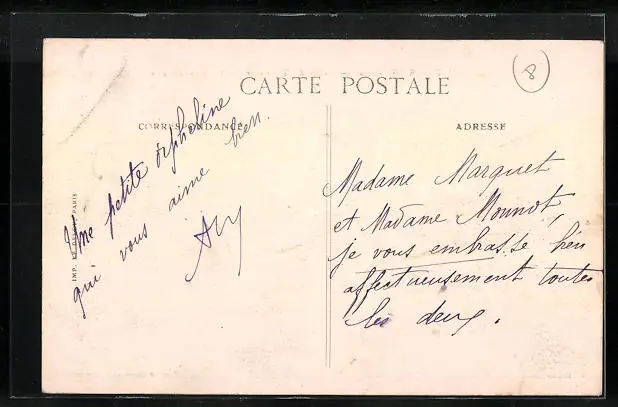 CARTE POSTALE
8
CORRESPONDANCE
ADRESSE
Une petite orpheline
qui vous aime bien.
Madame Marquet
et Madame Monnot,
je vous embrasse bien
affectueusement toutes
les deux.
IMP.
PARIS